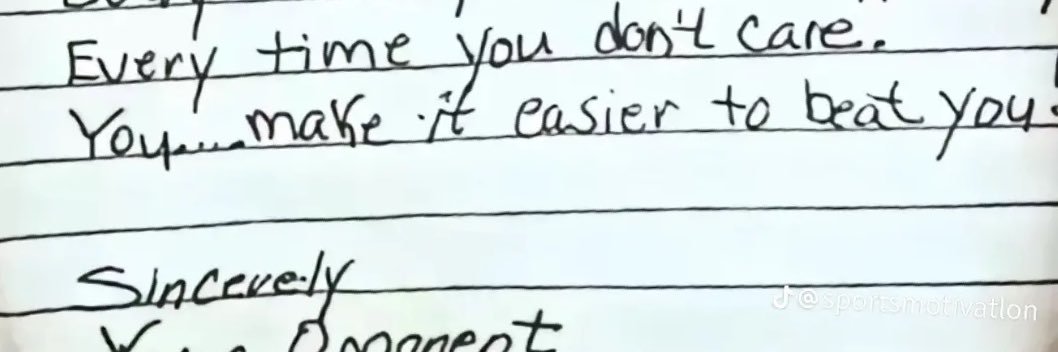 Every time you don't care.
You.....make it easier to beat you.
Sincerely
Opponent
@sportsmotivation